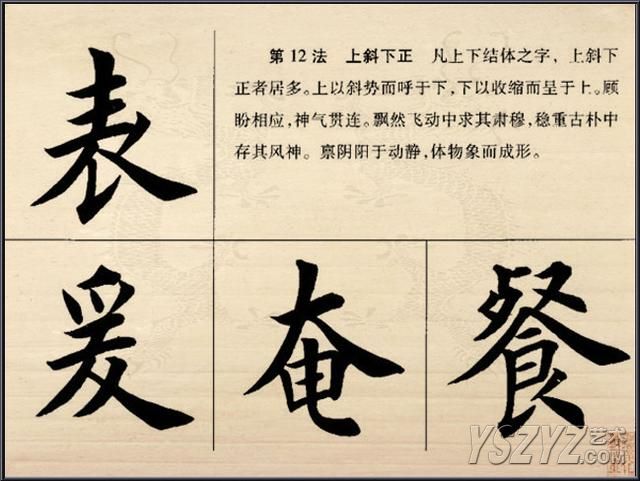 表
第12法 上斜下正 凡上下结体之字，上斜下
正者居多。上以斜势而呼于下，下以收缩而呈于上。顾
盼相应，神气贯连。飘然飞动中求其肃穆，稳重古朴中
存其风神。禀阴阳于动静，体物象而成形。
爰 奄 餐
YSZYZ艺术
.COM